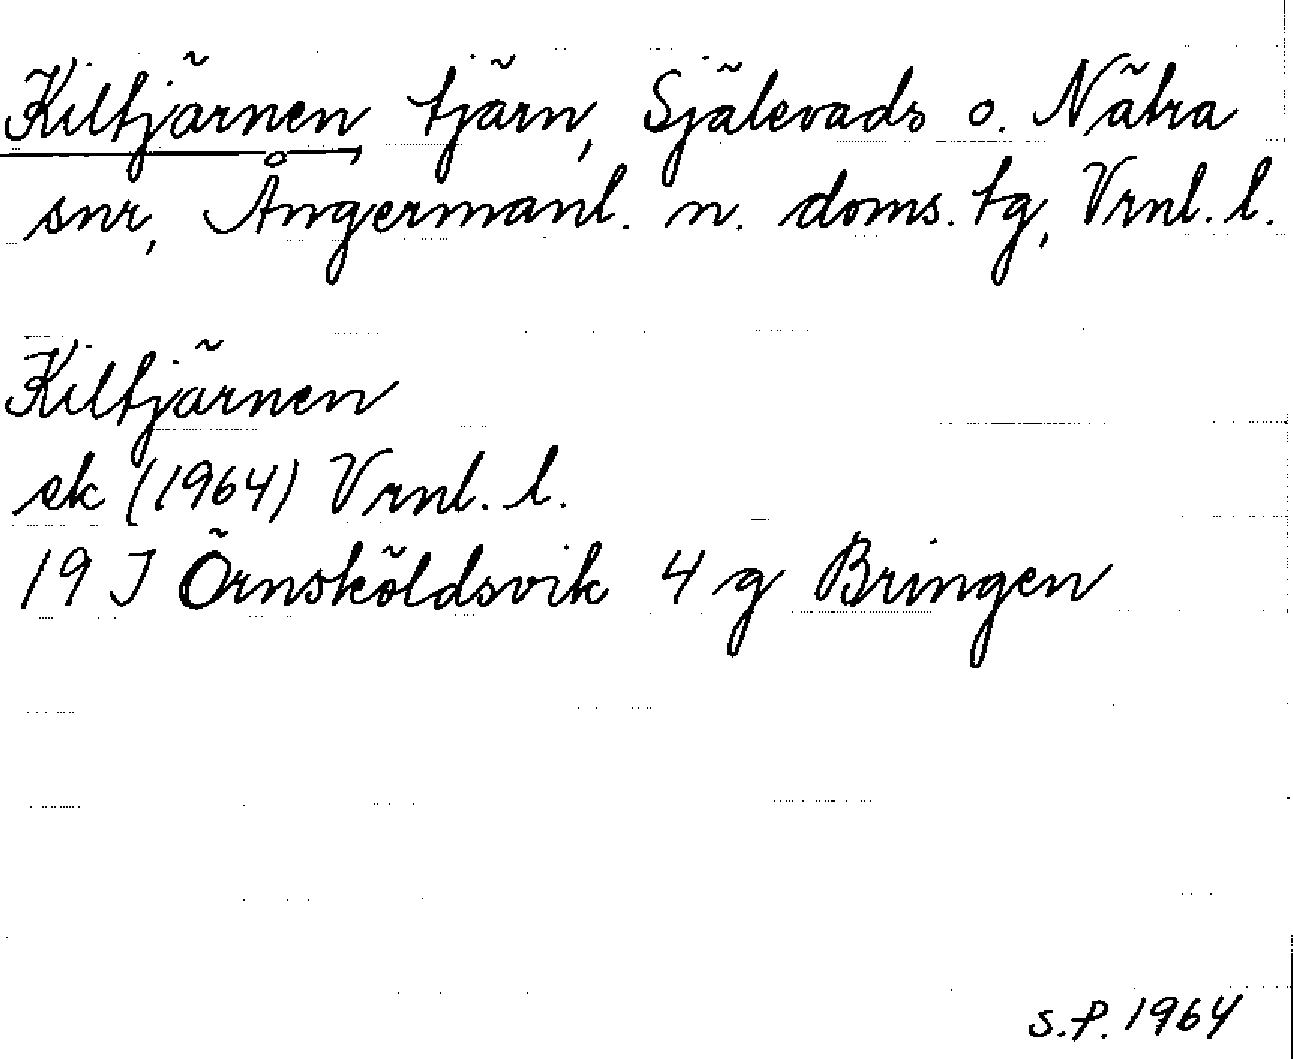 Kiltjärnen, tjärn, Själevads o. Nätra
snr, Ångermanl. n. doms. tg, Vrnl. l.
Kiltjärnen
ek (1964) Vrnl. l.
19 J Örnsköldsvik 4 g Bringen
S.P. 1964